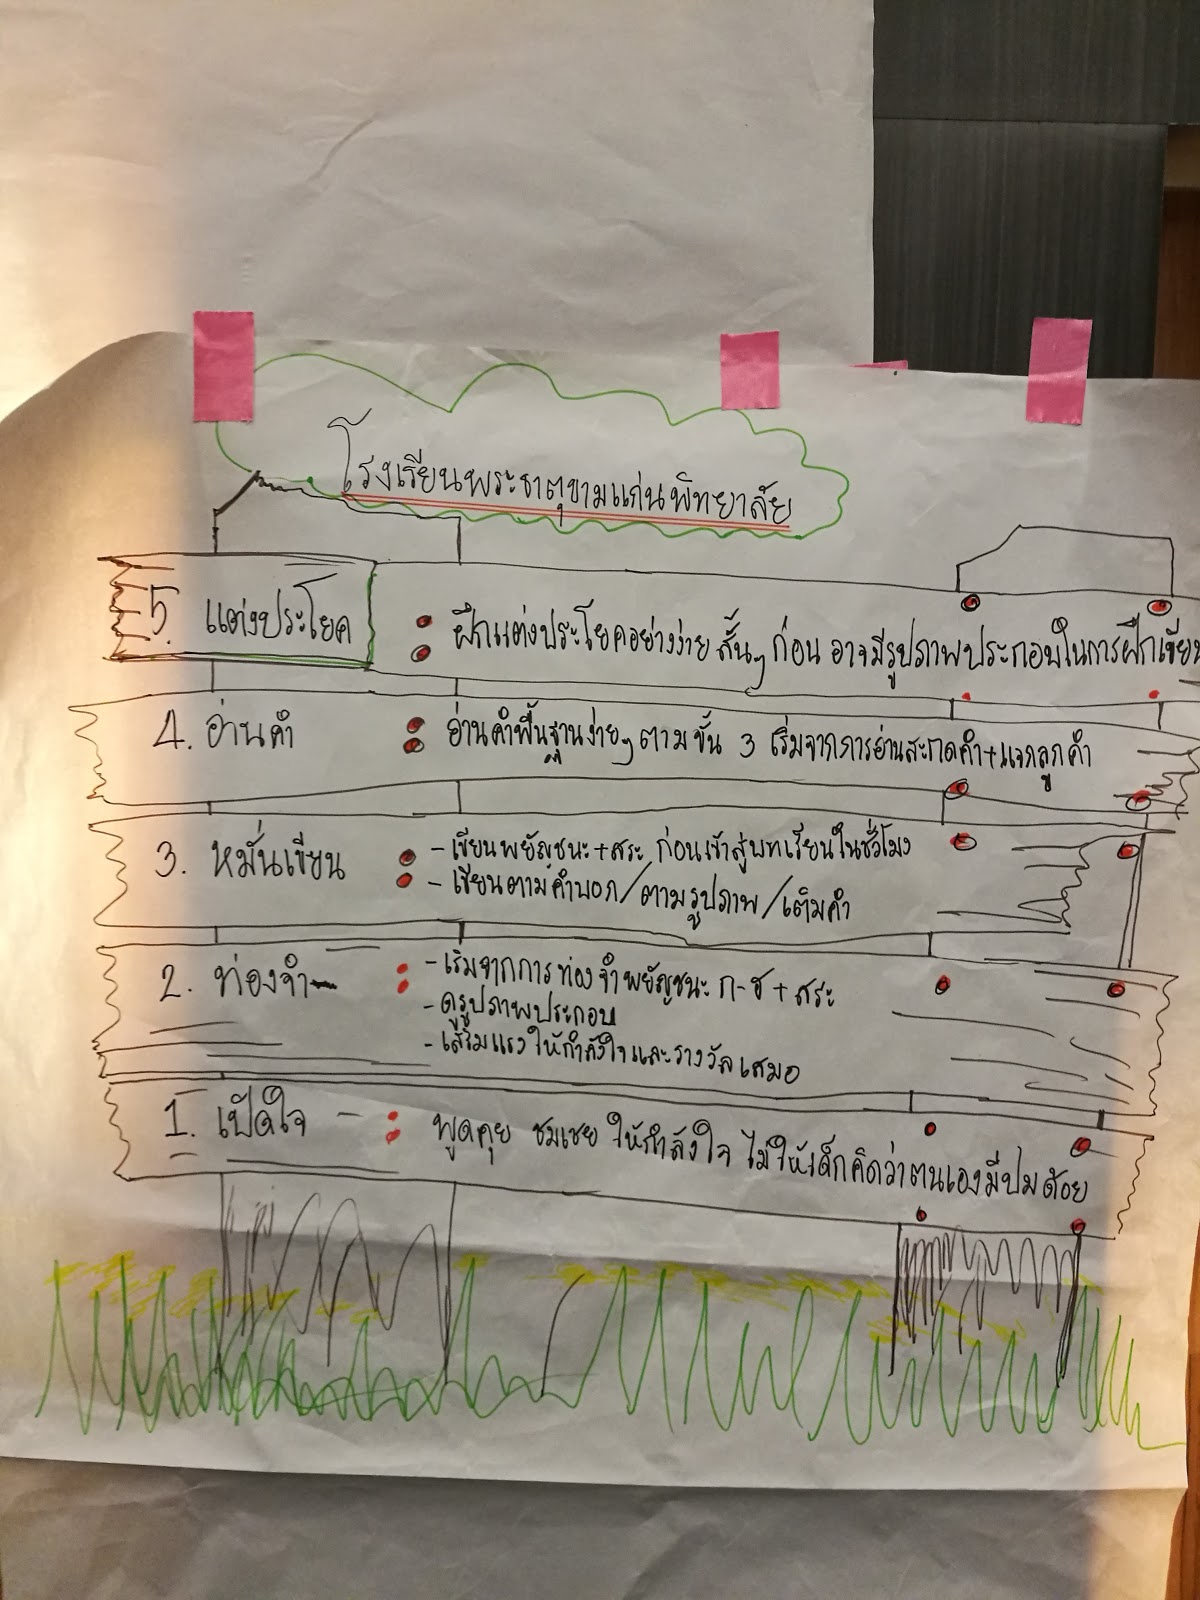 โรงเรียนพระธาตุขามแก่นพิทยาลัย
5. แต่งประโยค : ฝึกแต่งประโยคอย่างง่าย สั้นๆ ก่อน อาจมีรูปภาพประกอบในการฝึกเขียน
4. อ่านคำ : อ่านคำพื้นฐานง่ายๆ ตามขั้น 3 เริ่มจากการอ่านสะกดคำ+แจกลูกคำ
3. หมั่นเขียน : - เขียนพยัญชนะ+สระ ก่อนเข้าสู่บทเรียนในชั่วโมง
- เขียนตามคำบอก/ตามรูปภาพ/เติมคำ
2. ท่องจำ : - เริ่มจากการท่องจำพยัญชนะ ก-ฮ + สระ
- ดูรูปภาพประกอบ
- เสริมแรง ให้กำลังใจและรางวัลเสมอ
1. เปิดใจ - : พูดคุย ชมเชย ให้กำลังใจ ไม่ให้เด็กคิดว่าตนเองมีปมด้อย